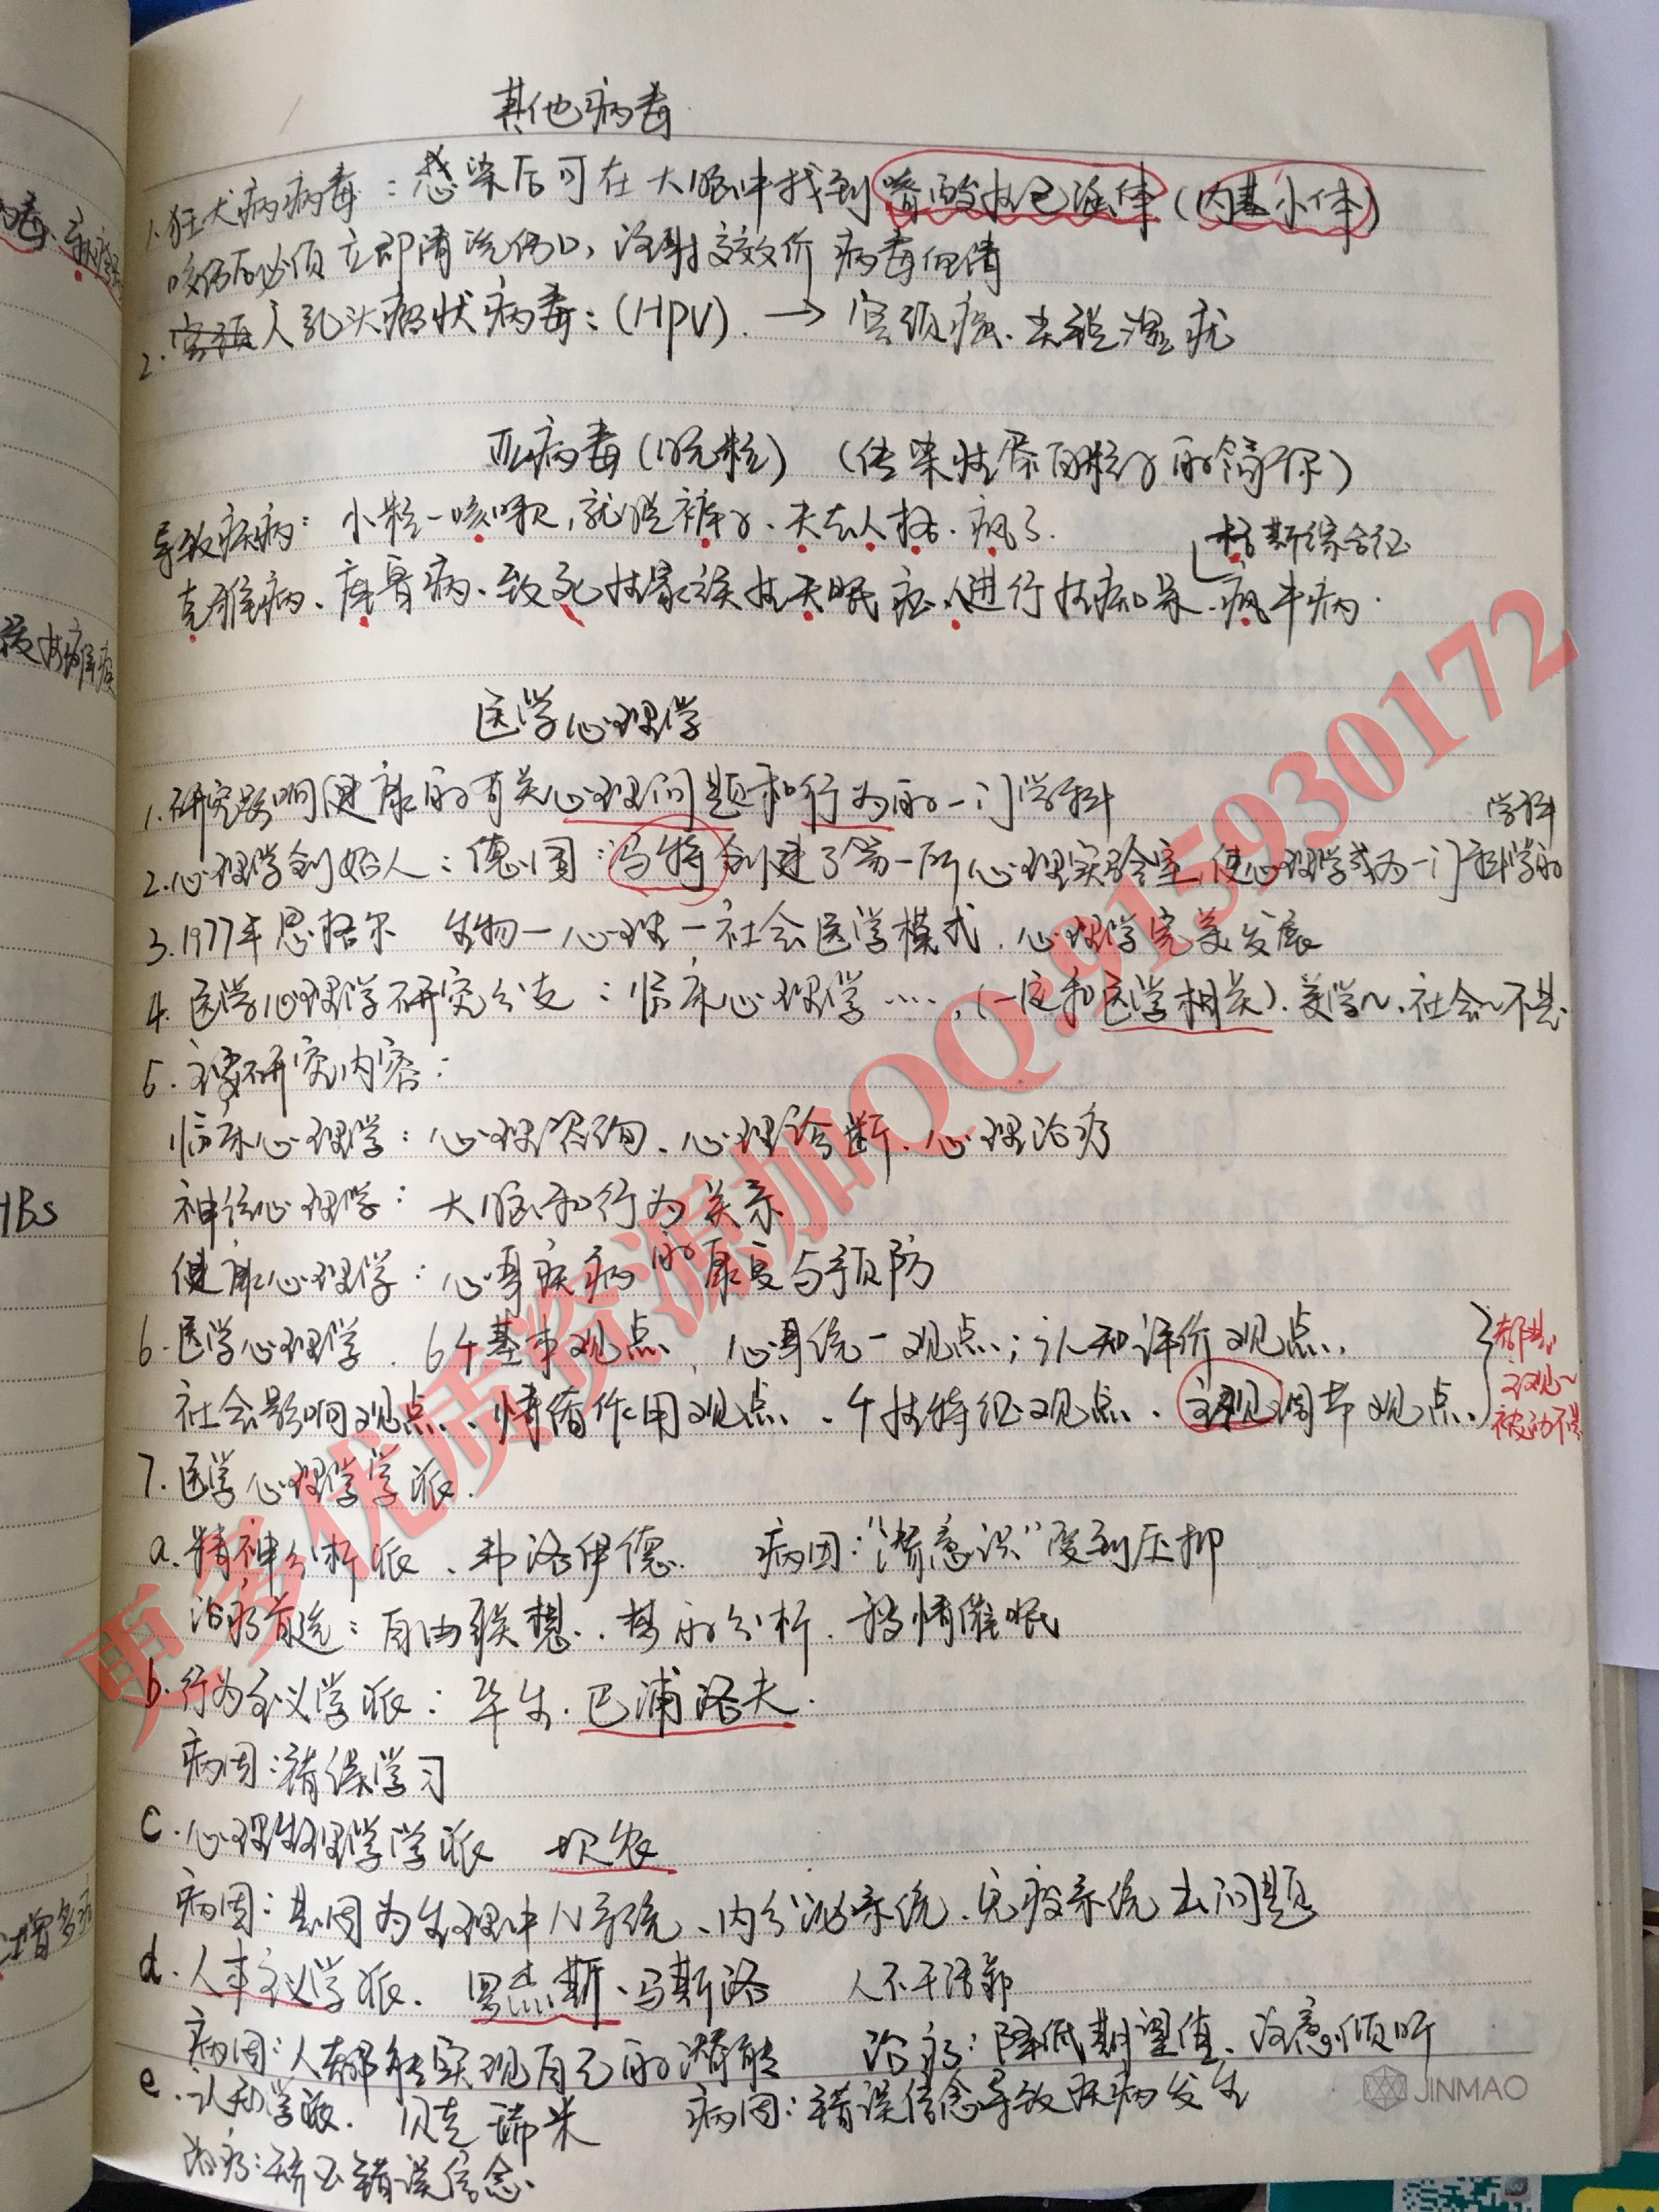 其他病毒
1.狂犬病病毒：感染后可在大脑中找到嗜酸性包涵体(内基小体)
咬伤后必须立即清洗伤口，注射高效价病毒血清
2.人乳头瘤状病毒：(HPV).→宫颈癌、尖锐湿疣
亚病毒(朊粒) (传染性蛋白粒子的简称)
导致疾病：小粒一咳嗽，就脱裤子、夫去人格.疯了.
格斯综合征
克雅病、库鲁病、致死性家族性失眠症、人进行性痴呆、疯牛病.
医学心理学
1.研究影响健康的有关心理问题和行为的一门学科
学科
2.心理学创始人：德国：冯特创建了第一所心理实验室，使心理学成为一门科学的
3.1977年恩格尔 生物一心理一社会医学模式.心理学完美发展
4.医学心理学研究分支：临床心理学……,(一定和医学相关).美学~、社会~不是.
5.主要研究内容：
临床心理学：心理咨询、心理诊断、心理治疗
神经心理学：大脑和行为关系
健康心理学：心身疾病的康复与预防
6.医学心理学.6个基本观点，心身统一观点；认知评价观点.
社会影响观点、情绪作用观点、个性特征观点、主观调节观点.
都是
主观~
被动不是
7.医学心理学学派.
a.精神分析派、弗洛伊德. 病因："潜意识"受到压抑
治疗首选：自由联想.、梦的分析.移情催眠
b.行为主义学派：华生.巴浦洛夫.
病因：错误学习
c.心理生理学学派 坎农
病因：其因为生理中N系统、内分泌系统、免疫系统出问题
d.人本主义学派.罗杰斯、马斯洛 人不干活郁
病因：人都能实现自己的潜能 治疗：降低期望值、注意倾听
e.认知学派.贝克 瑞米 病因：错误信念导致疾病发生
治疗：矫正错误信念.
HBs
JINMAO
更多优质资源加QQ:915930172